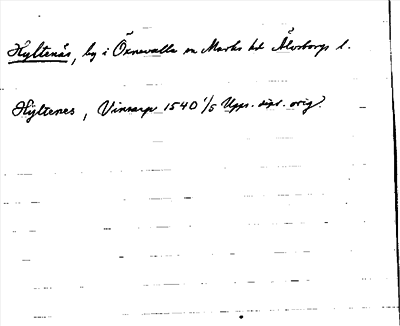 Hyltenäs, by i Öxnevalla sn Marks hd Älvsborgs l.
Hÿltenes, Vinsarp 1540 1/5 Upps. dipl. orig.